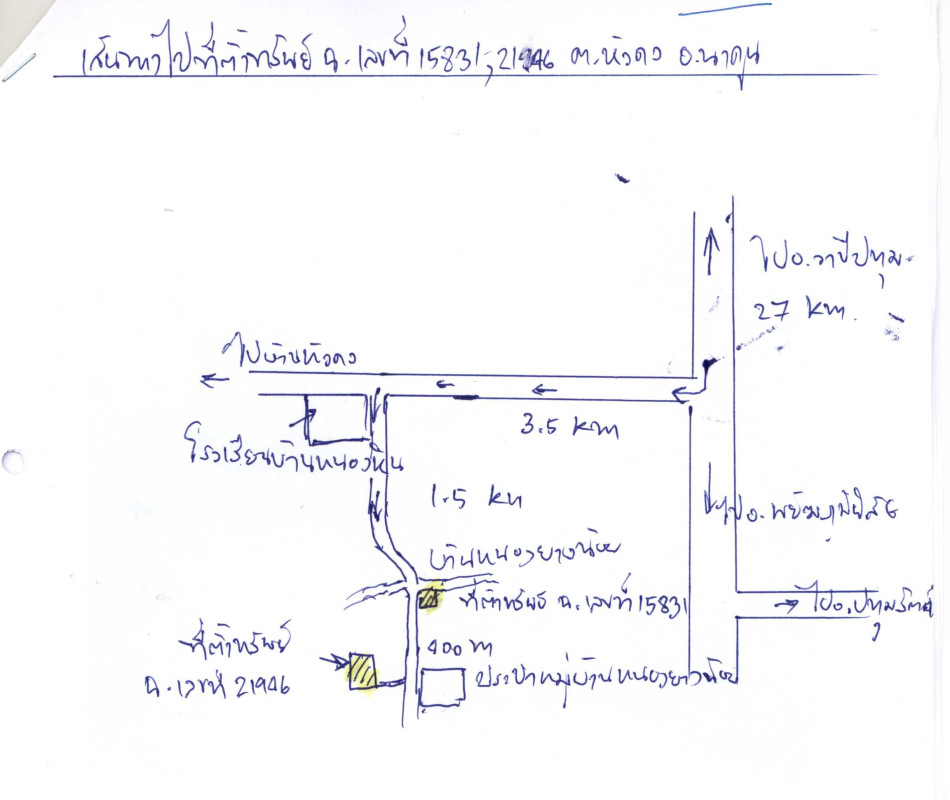 เส้นทางไปที่ตั้งทรัพย์ ฉ. เลขที่ 15831, 21946 ต.หัวดง อ.นาดูน
ไป อ.วาปีปทุม
27 km.
ไปบ้านหัวดง
3.5 km
โรงเรียนบ้านหนองหิน
1.5 km
ไป อ.พยัคฆภูมิพิสัย
บ้านหนองยางน้อย
ที่ตั้งทรัพย์ ฉ. เลขที่ 15831
ไป อ.ปทุมรัตต์
ที่ตั้งทรัพย์
ฉ. เลขที่ 21946
400 m
ประปาหมู่บ้านหนองยางน้อย